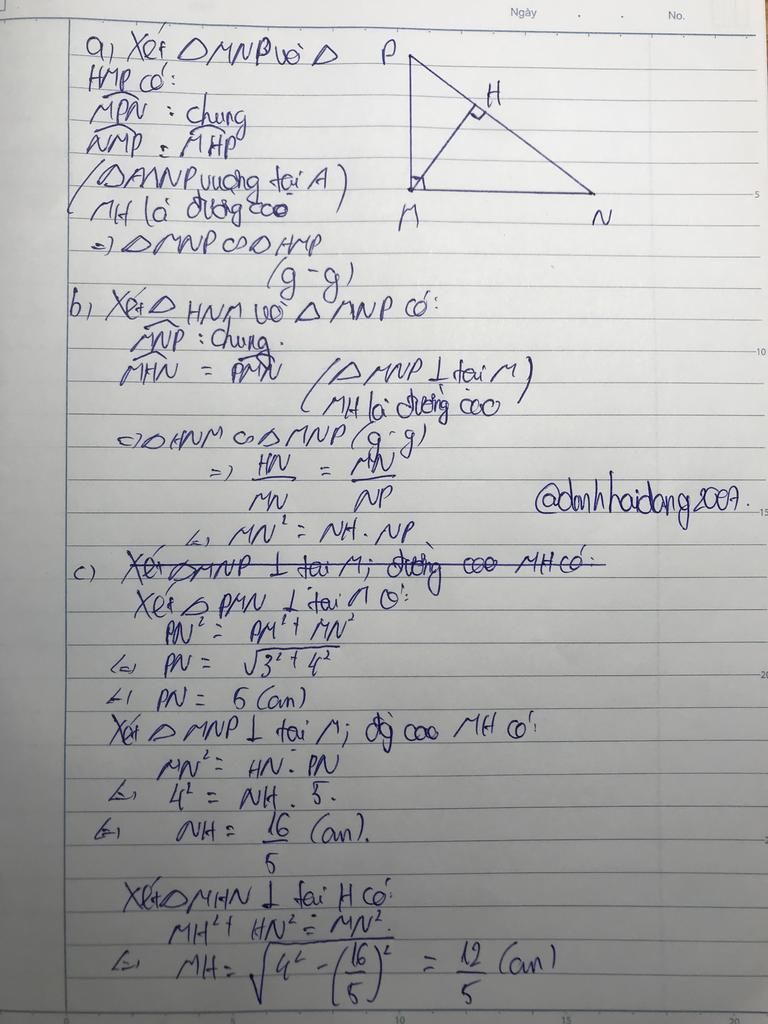 Ngày . . No.
a) Xét △MNP và △
HMP có:
MPN : chung
NMP = MHP
(△MNP vuông tại A)
MH là đường cao
=) △MNP ∽ △HMP
(g-g)
P
H
M
N
b) Xét △ HNM và △ MNP có:
MNP : chung.
MHN = PMN (△ MNP ⊥ tại M)
MH là đường cao
=) △HNM ∽ △ MNP (g-g)
=) HN/MN = MN/NP
@danhhaidang2007.
<=) MN² = NH . NP
c) Xét △MNP ⊥ tại M; đường cao MH có:
Xét △ PMN ⊥ tại M có:
PN² = PM² + MN²
<=) PN = √3² + 4²
<=) PN = 5 (cm)
Xét △ MNP ⊥ tại M; đg cao MH có:
MN² = HN . PN
<=) 4² = NH . 5.
<=) NH = 16/5 (cm).
Xét △MHN ⊥ tại H có:
MH² + HN² = MN².
<=) MH = √4² - (16/5)² = 12/5 (cm)
5
10
15
20
0
5
10
15
20